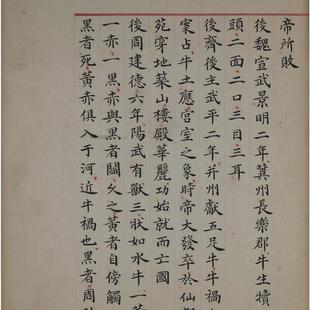 帝所敗
後魏宣武景明二年冀州長樂郡牛生犢
頭二面二口三目三耳
後齊後主武平二年并州獻五足牛牛禍
案占牛土應宮室之象時帝大發卒於仙
苑穿地築山樓殿華麗功始就而亡國
後周建德六年陽武有獸三狀如水牛一黃
一赤一黑赤與黑者鬬久之黃者自傍觸
黑者死黃赤俱入于河近牛禍也黑者周